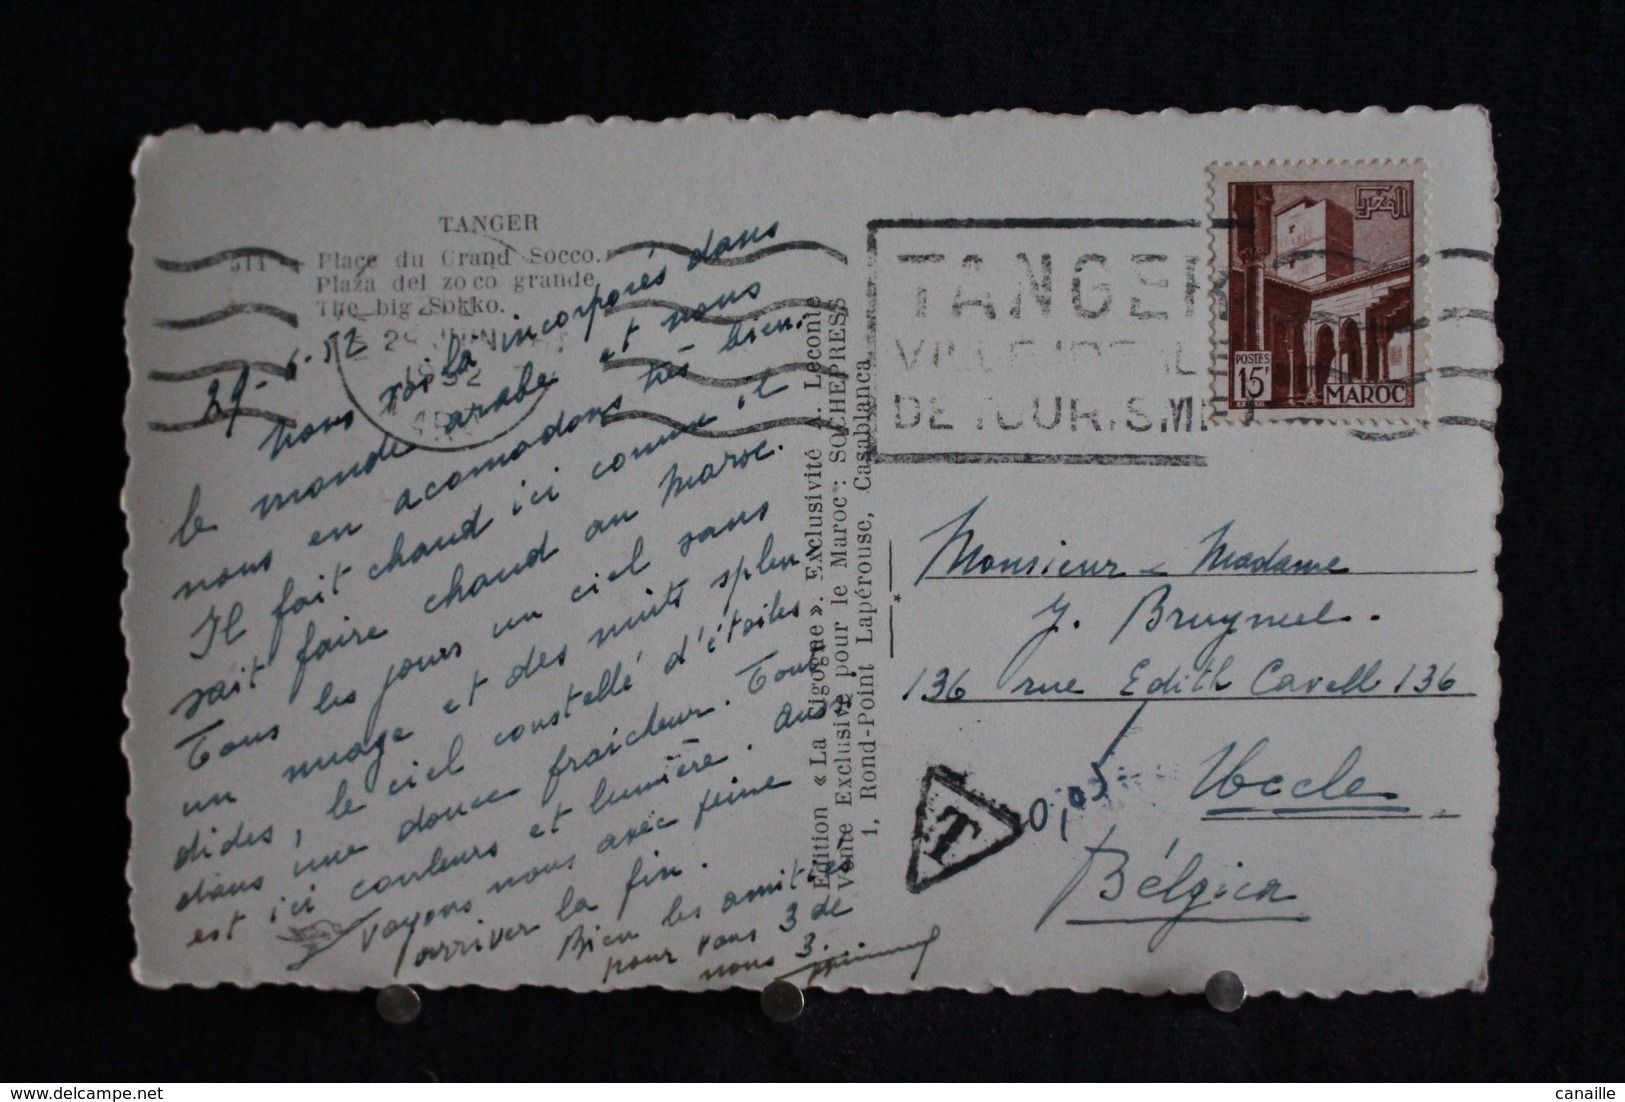 TANGER
511 - Place du Grand Socco.
Plaza del zoco grande.
The big Sokko.
29-6-52
Nous voila incorporés dans
le monde arabe et nous
nous en acomodons très bien.
Il fait chaud ici comme il
sait faire chaud au Maroc.
Tous les jours un ciel sans
un nuage et des nuits splen
dides, le ciel constellé d'étoiles
dans une douce fraicheur. Tout
est ici couleurs et lumière. Aussi
voyons nous avec peine
arriver la fin.
Bien les amitiés
pour vous 3 de
nous 3.
Edition « La Cigogne ». Exclusivité. Leconte
Vente Exclusive pour le Maroc : SOCHEPRESS
1, Rond-Point Lapérouse, Casablanca
28 JUIN
1952
TANGER
VILLE IDEALE
DE TOURISME
المغرب
POSTES
15F
MAROC
Monsieur - Madame
J. Bruyneel.
136 rue Edith Cavell 136
Uccle
Bélgica
T
delcampe.net
canaille